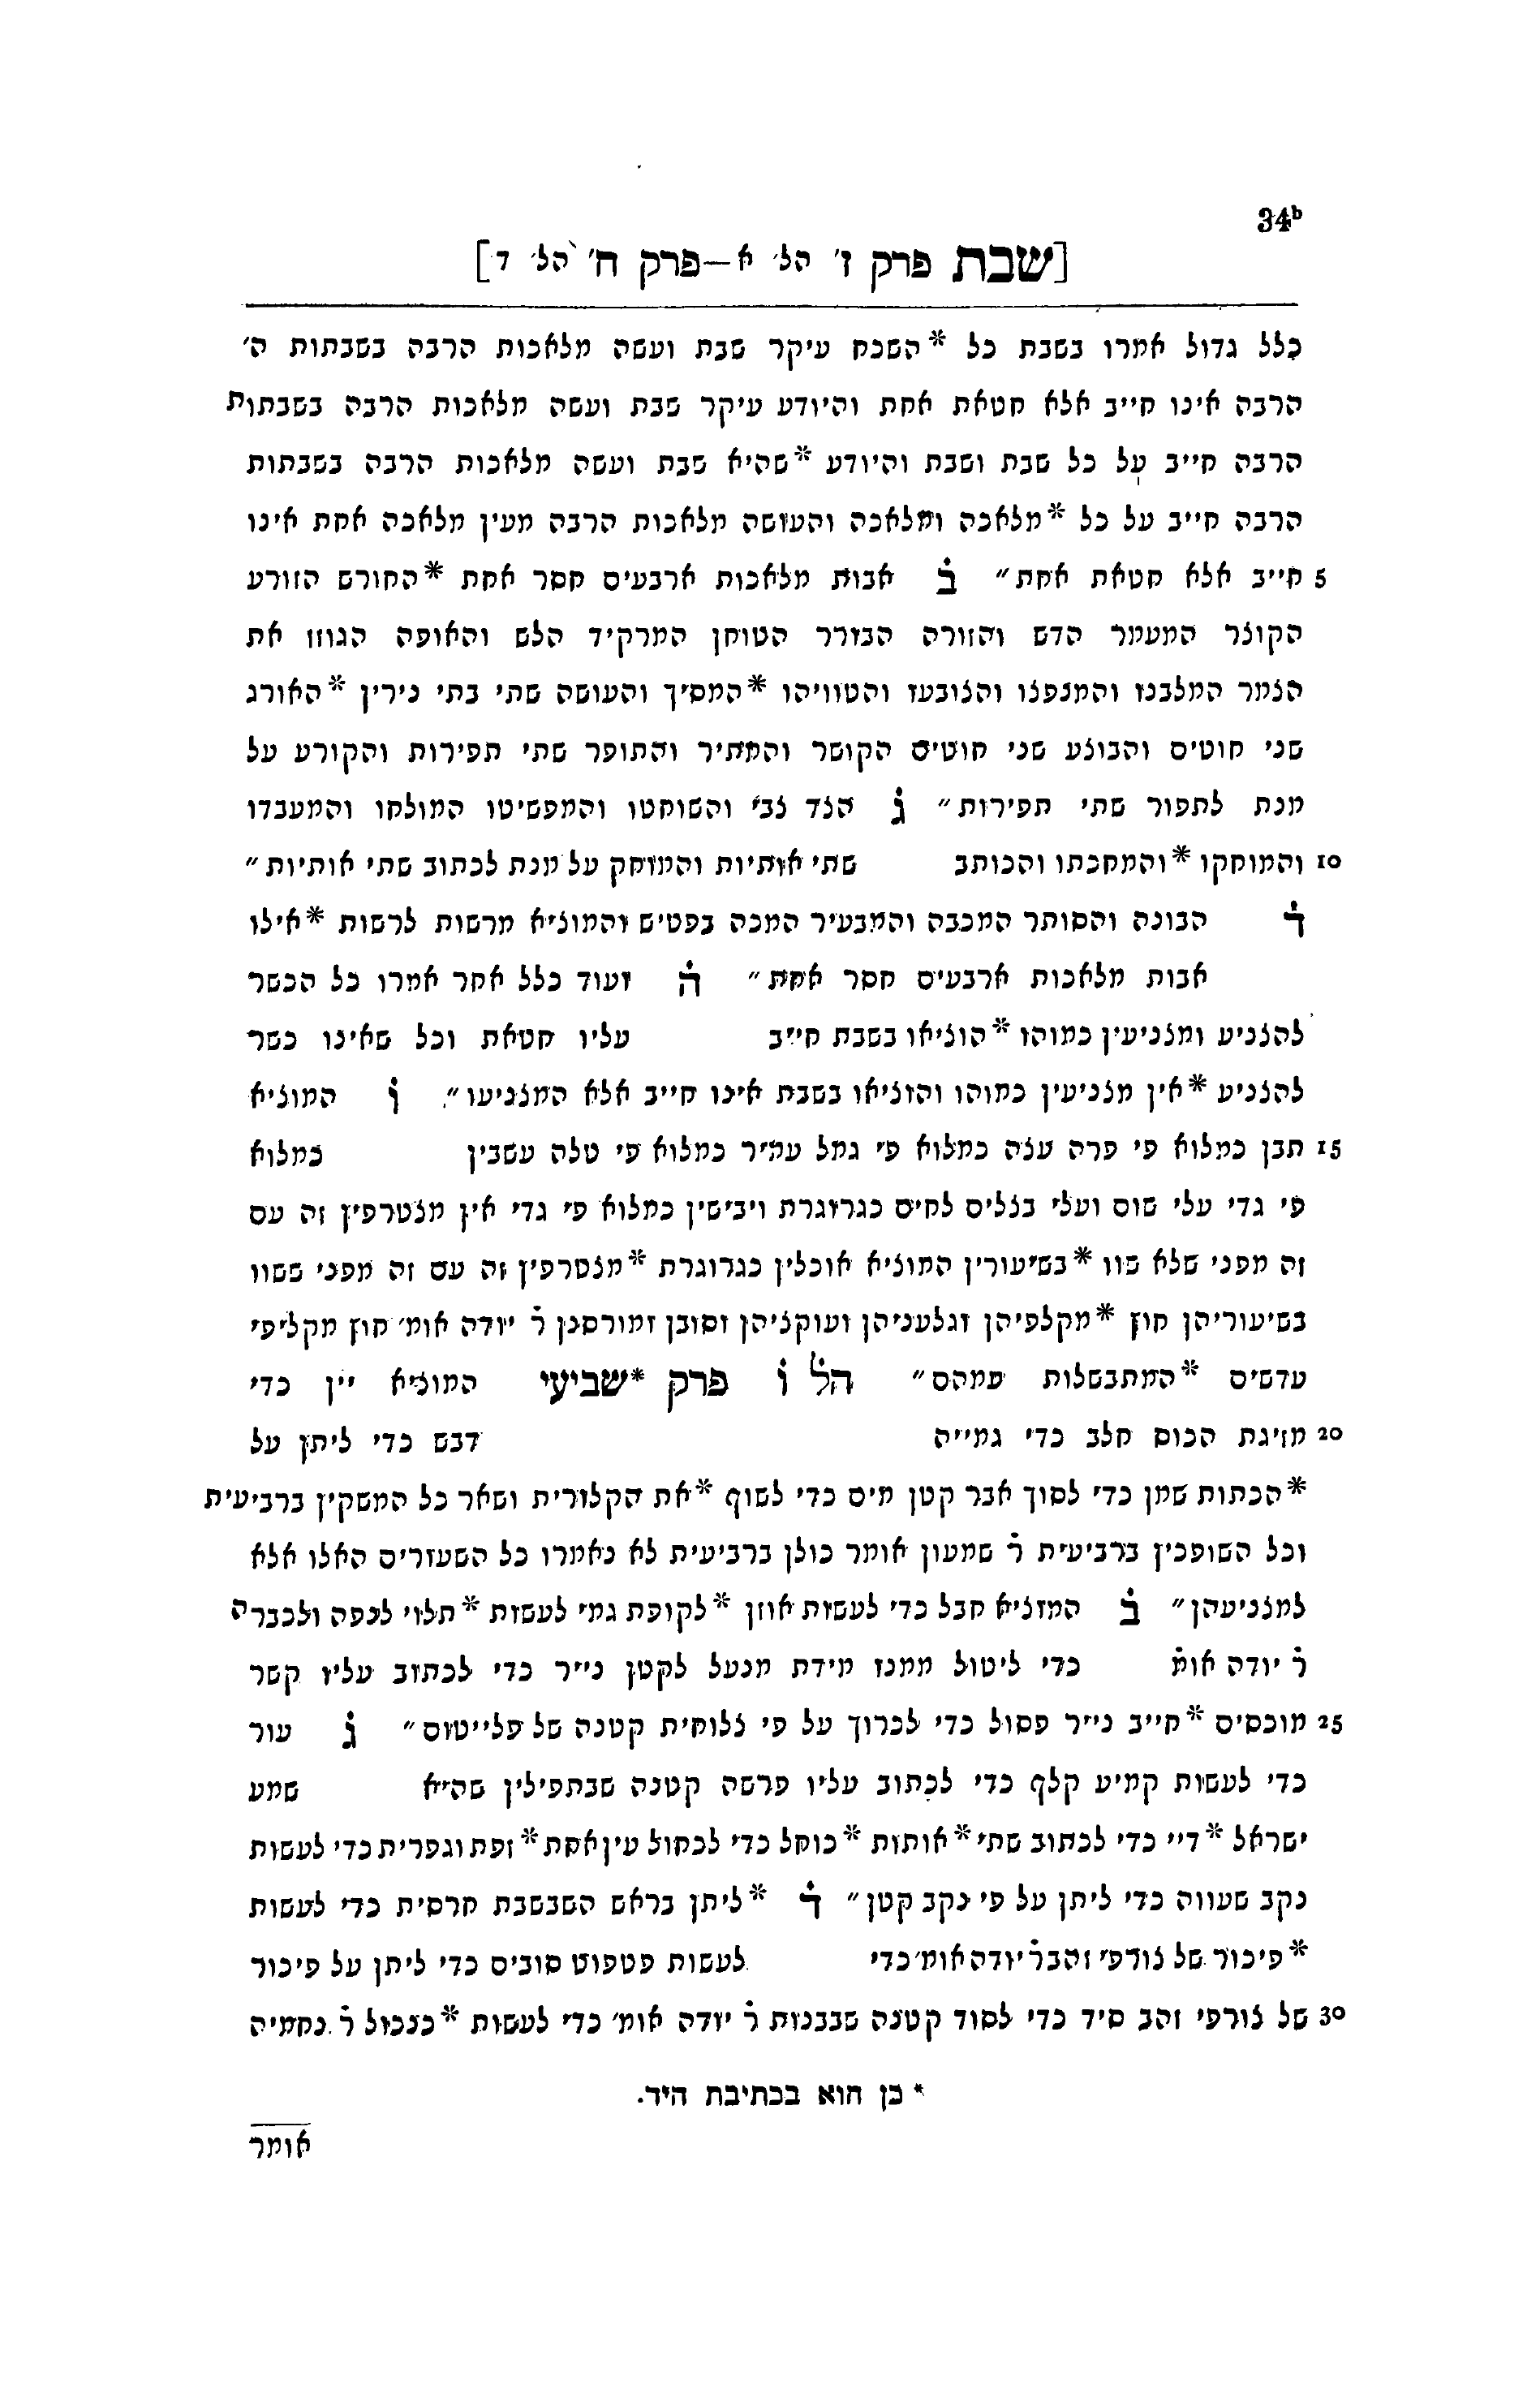 34ᵇ
[שבת פרק ז' הל' א—פרק ח' הל' ד]
כלל גדול אמרו בשבת כל *השכח עיקר שבת ועשה מלאכות הרבה בשבתות ה'
הרבה אינו חייב אלא חטאת אחת והיודע עיקר שבת ועשה מלאכות הרבה בשבתות
הרבה חייב על כל שבת ושבת והיודע *שהיא שבת ועשה מלאכות הרבה בשבתות
הרבה חייב על כל *מלאכה ומלאכה והעושה מלאכות הרבה מעין מלאכה אחת אינו
5 חייב אלא חטאת אחת״ ב אבות מלאכות ארבעים חסר אחת *החורש הזורע
הקוצר המעמר הדש והזורה הבורר הטוחן המרקיד הלש והאופה הגוזז את
הצמר המלבנו והמנפצו והצובעו והטוויהו *המסיך והעושה שתי בתי נירין *האורג
שני חוטים והבוצע שני חוטים הקושר והמתיר והתופר שתי תפירות והקורע על
מנת לתפור שתי תפירות״ ג הצד צבי והשוחטו והמפשיטו המולחו והמעבדו
10 והמוחקו *והמחכתו והכותב שתי אותיות והמוחק על מנת לכתוב שתי אותיות״
ד הבונה והסותר המכבה והמבעיר המכה בפטיש והמוציא מרשות לרשות *אילו
אבות מלאכות ארבעים חסר אחת״ ה ועוד כלל אחר אמרו כל הכשר
להצניע ומצניעין כמוהו *הוציאו בשבת חייב עליו חטאת וכל שאינו כשר
להצניע *אין מצניעין כמוהו והוציאו בשבת אינו חייב אלא המצניעו״ ו המוציא
15 תבן כמלוא פי פרה עצה כמלוא פי גמל עמיר כמלוא פי טלה עשבין כמלוא
פי גדי עלי שום ועלי בצלים לחים כגרוגרת ויבישין כמלוא פי גדי אין מצטרפין זה עם
זה מפני שלא שוו *בשיעורין המוציא אוכלין כגרוגרת *מצטרפין זה עם זה מפני ששוו
בשיעוריהן חוץ *מקלפיהן וגלעניהן ועוקציהן וסובן ומורסנן ר יודה אומ' חוץ מקליפי
עדשים *המתבשלות עמהם״ הל ו פרק *שביעי המוציא יין כדי
20 מזיגת הכוס חלב כדי גמייה דבש כדי ליתן על
*הכתות שמן כדי לסוך אבר קטן מים כדי לשוף *את הקלורית ושאר כל המשקין ברביעית
וכל השופכין ברביעית ר שמעון אומר כולן ברביעית לא נאמרו כל השעורים האלו אלא
למצניעהן״ ב המוציא חבל כדי לעשות אוזן *לקופת גמי לעשות *תלוי לנפה ולכברה
ר יודה אומ כדי ליטול ממנו מידת מנעל לקטן נייר כדי לכתוב עליו קשר
25 מוכסים *חייב נייר פסול כדי לכרוך על פי צלוחית קטנה של פלייטום״ ג עור
כדי לעשות קמיע קלף כדי לכתוב עליו פרשה קטנה שבתפילין שהיא שמע
ישראל *דיי כדי לכתוב שתי *אותות *כוחל כדי לכחול עין אחת *זפת וגפרית כדי לעשות
נקב שעווה כדי ליתן על פי נקב קטן״ ד *ליתן בראש השבשבת חרסית כדי לעשות
*פיכור של צורפי זהב ר יודה אומ' כדי לעשות פטפוט סובים כדי ליתן על פיכור
30 של צורפי זהב סיד כדי לסוד קטנה שבבנות ר יודה אומ' כדי לעשות *כנכול ר נחמיה
* כן הוא בכתיבת היד.
אומר